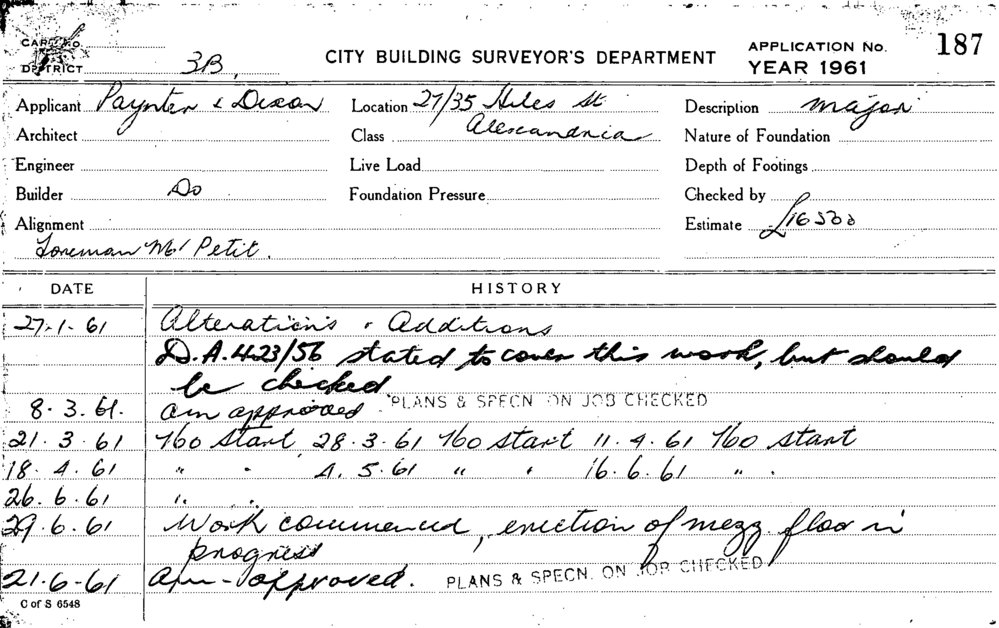 CARD No.
DISTRICT 3B,
CITY BUILDING SURVEYOR'S DEPARTMENT
APPLICATION No. 187
YEAR 1961
Applicant Paynter & Dixon
Location 27/35 Hiles St
Description major
Architect
Class Alexandria
Nature of Foundation
Engineer
Live Load
Depth of Footings
Builder Do
Foundation Pressure
Checked by
Alignment
Estimate £16500
Foreman Mr Petit.
DATE HISTORY
27-1-61 Alterations & Additions
D.A. 423/56 stated to cover this work, but should
be checked
8.3.61. am approved. PLANS & SPECN ON JOB CHECKED
21.3.61 No start 28.3.61 No start 11.4.61 No start
18.4.61 " " 4.5.61 " " 16.6.61 " "
26.6.61 " "
29.6.61 Work commenced, erection of mezz. floor in
progress
21-6-61 am-approved. PLANS & SPECN. ON JOB CHECKED
C of S 6548